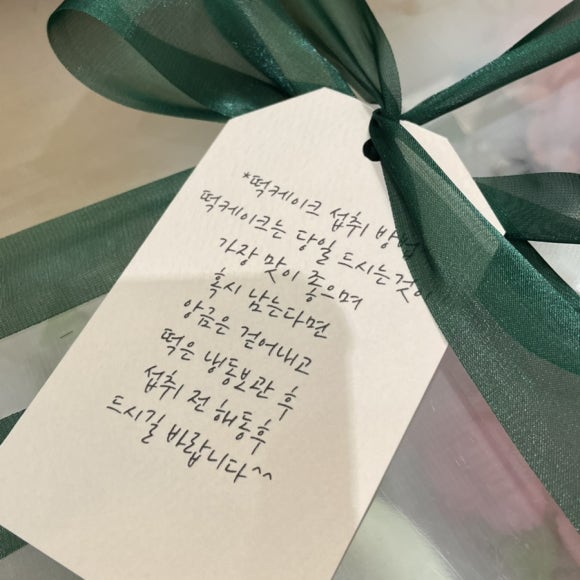 *떡케이크 섭취 방법
떡케이크는 당일 드시는것이
가장 맛이 좋으며
혹시 남는다면
앙금은 걷어내고
떡은 냉동보관 후
섭취 전 해동후
드시길 바랍니다^^